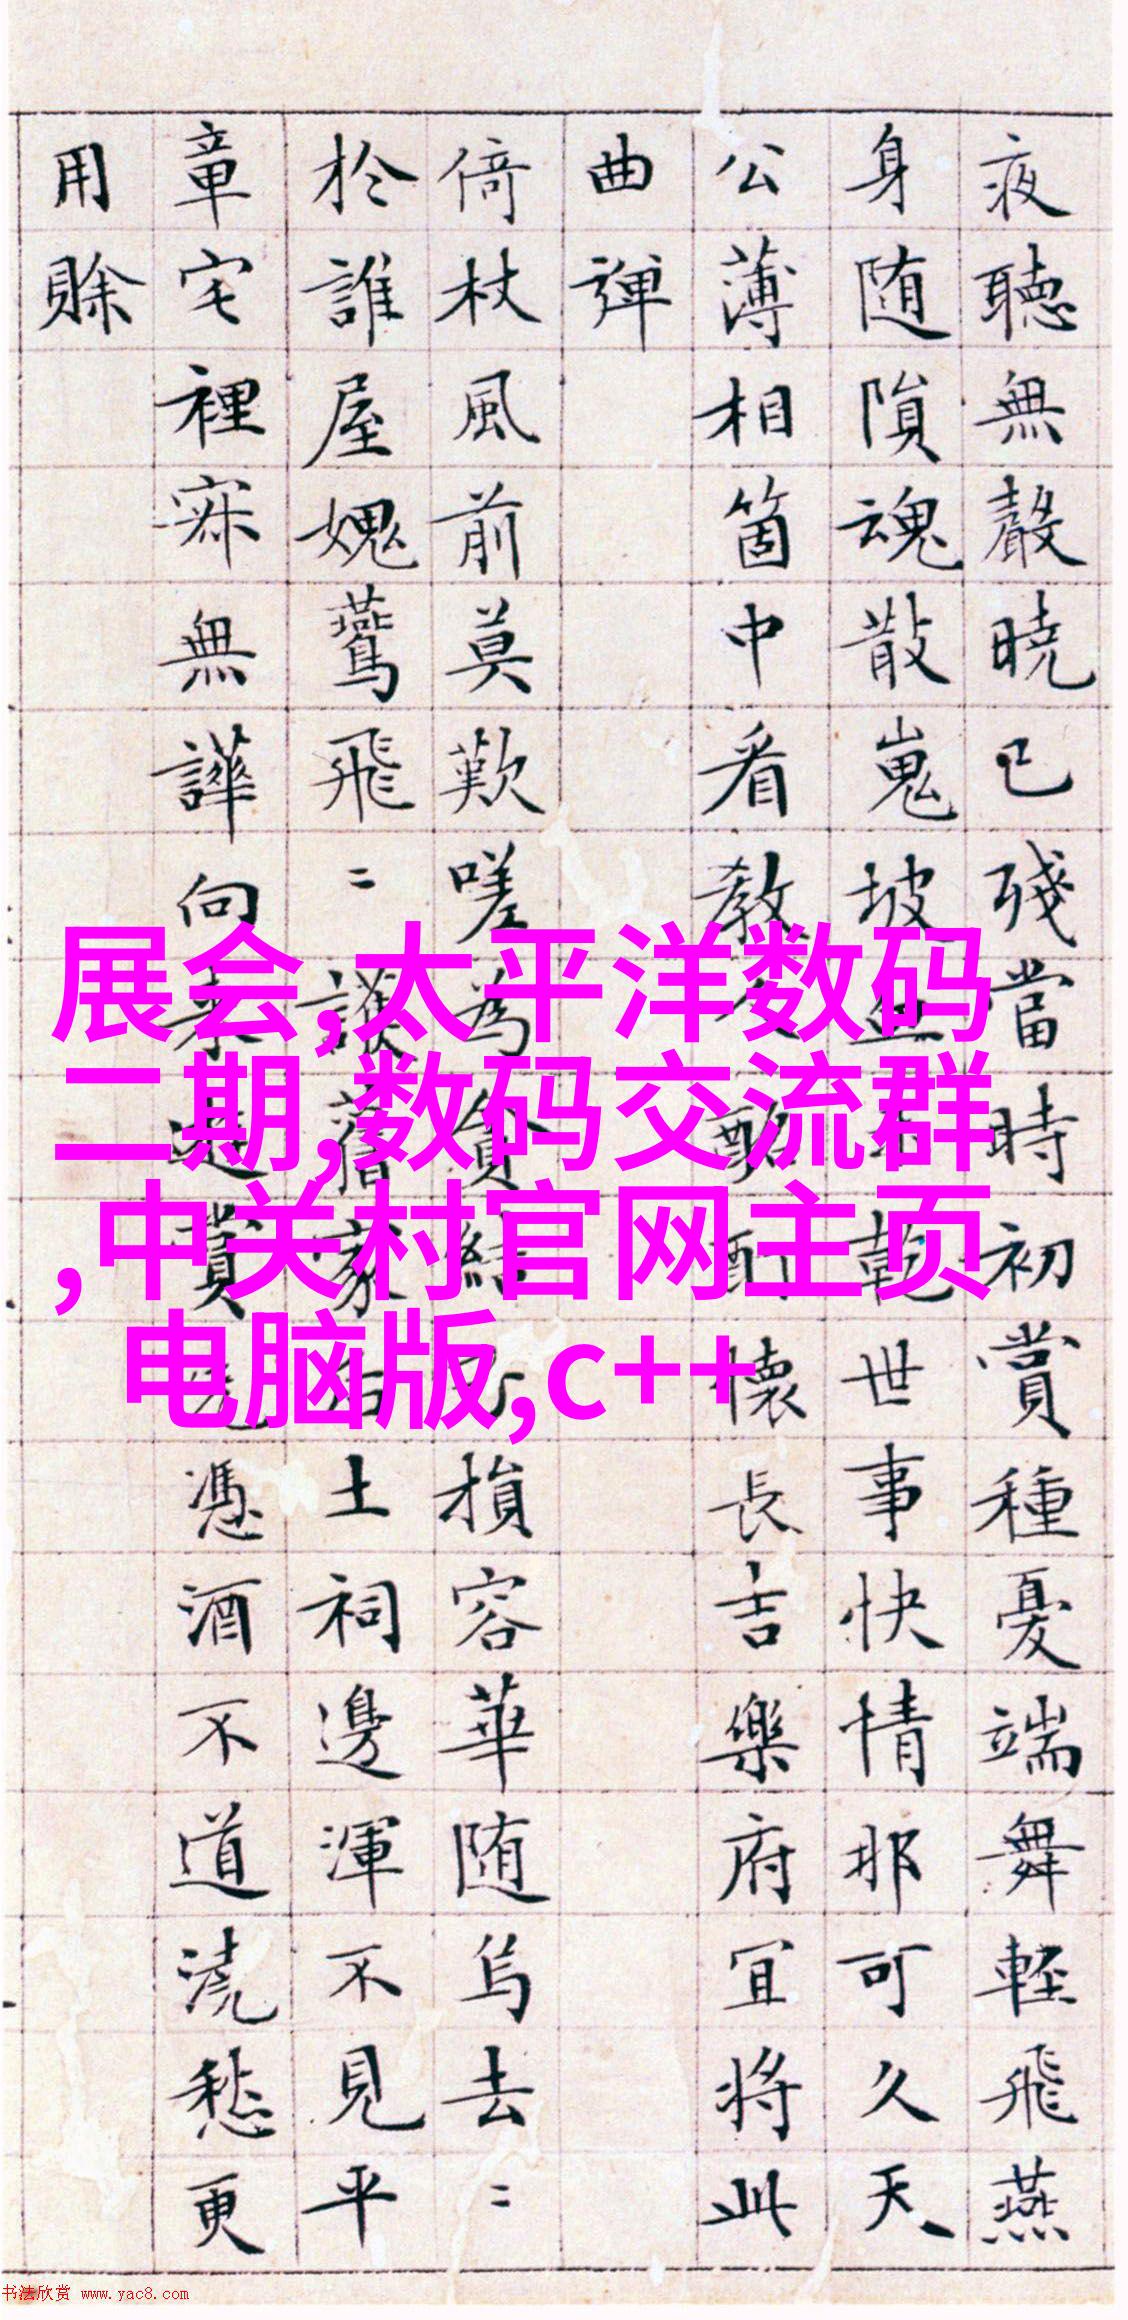 夜聽無聲曉已殘當時初賞種憂端舞輕飛燕
身随隕魂散嵬坡乾世事快情那可久天
公薄相箇中看教酩酊懷長吉樂府宜將此
曲彈
倚杖風前莫歎嗟為貧結損容華随烏去〻
於誰屋媿鷰飛〻護舊家土祠邊渾不見平
章宅裡寂無譁向來遊賞憑酒不道澆愁更
用賒
展会,太平洋数码
二期,数码交流群
,中关村官网主页
电脑版,c++
书法欣赏 www.yac8.com